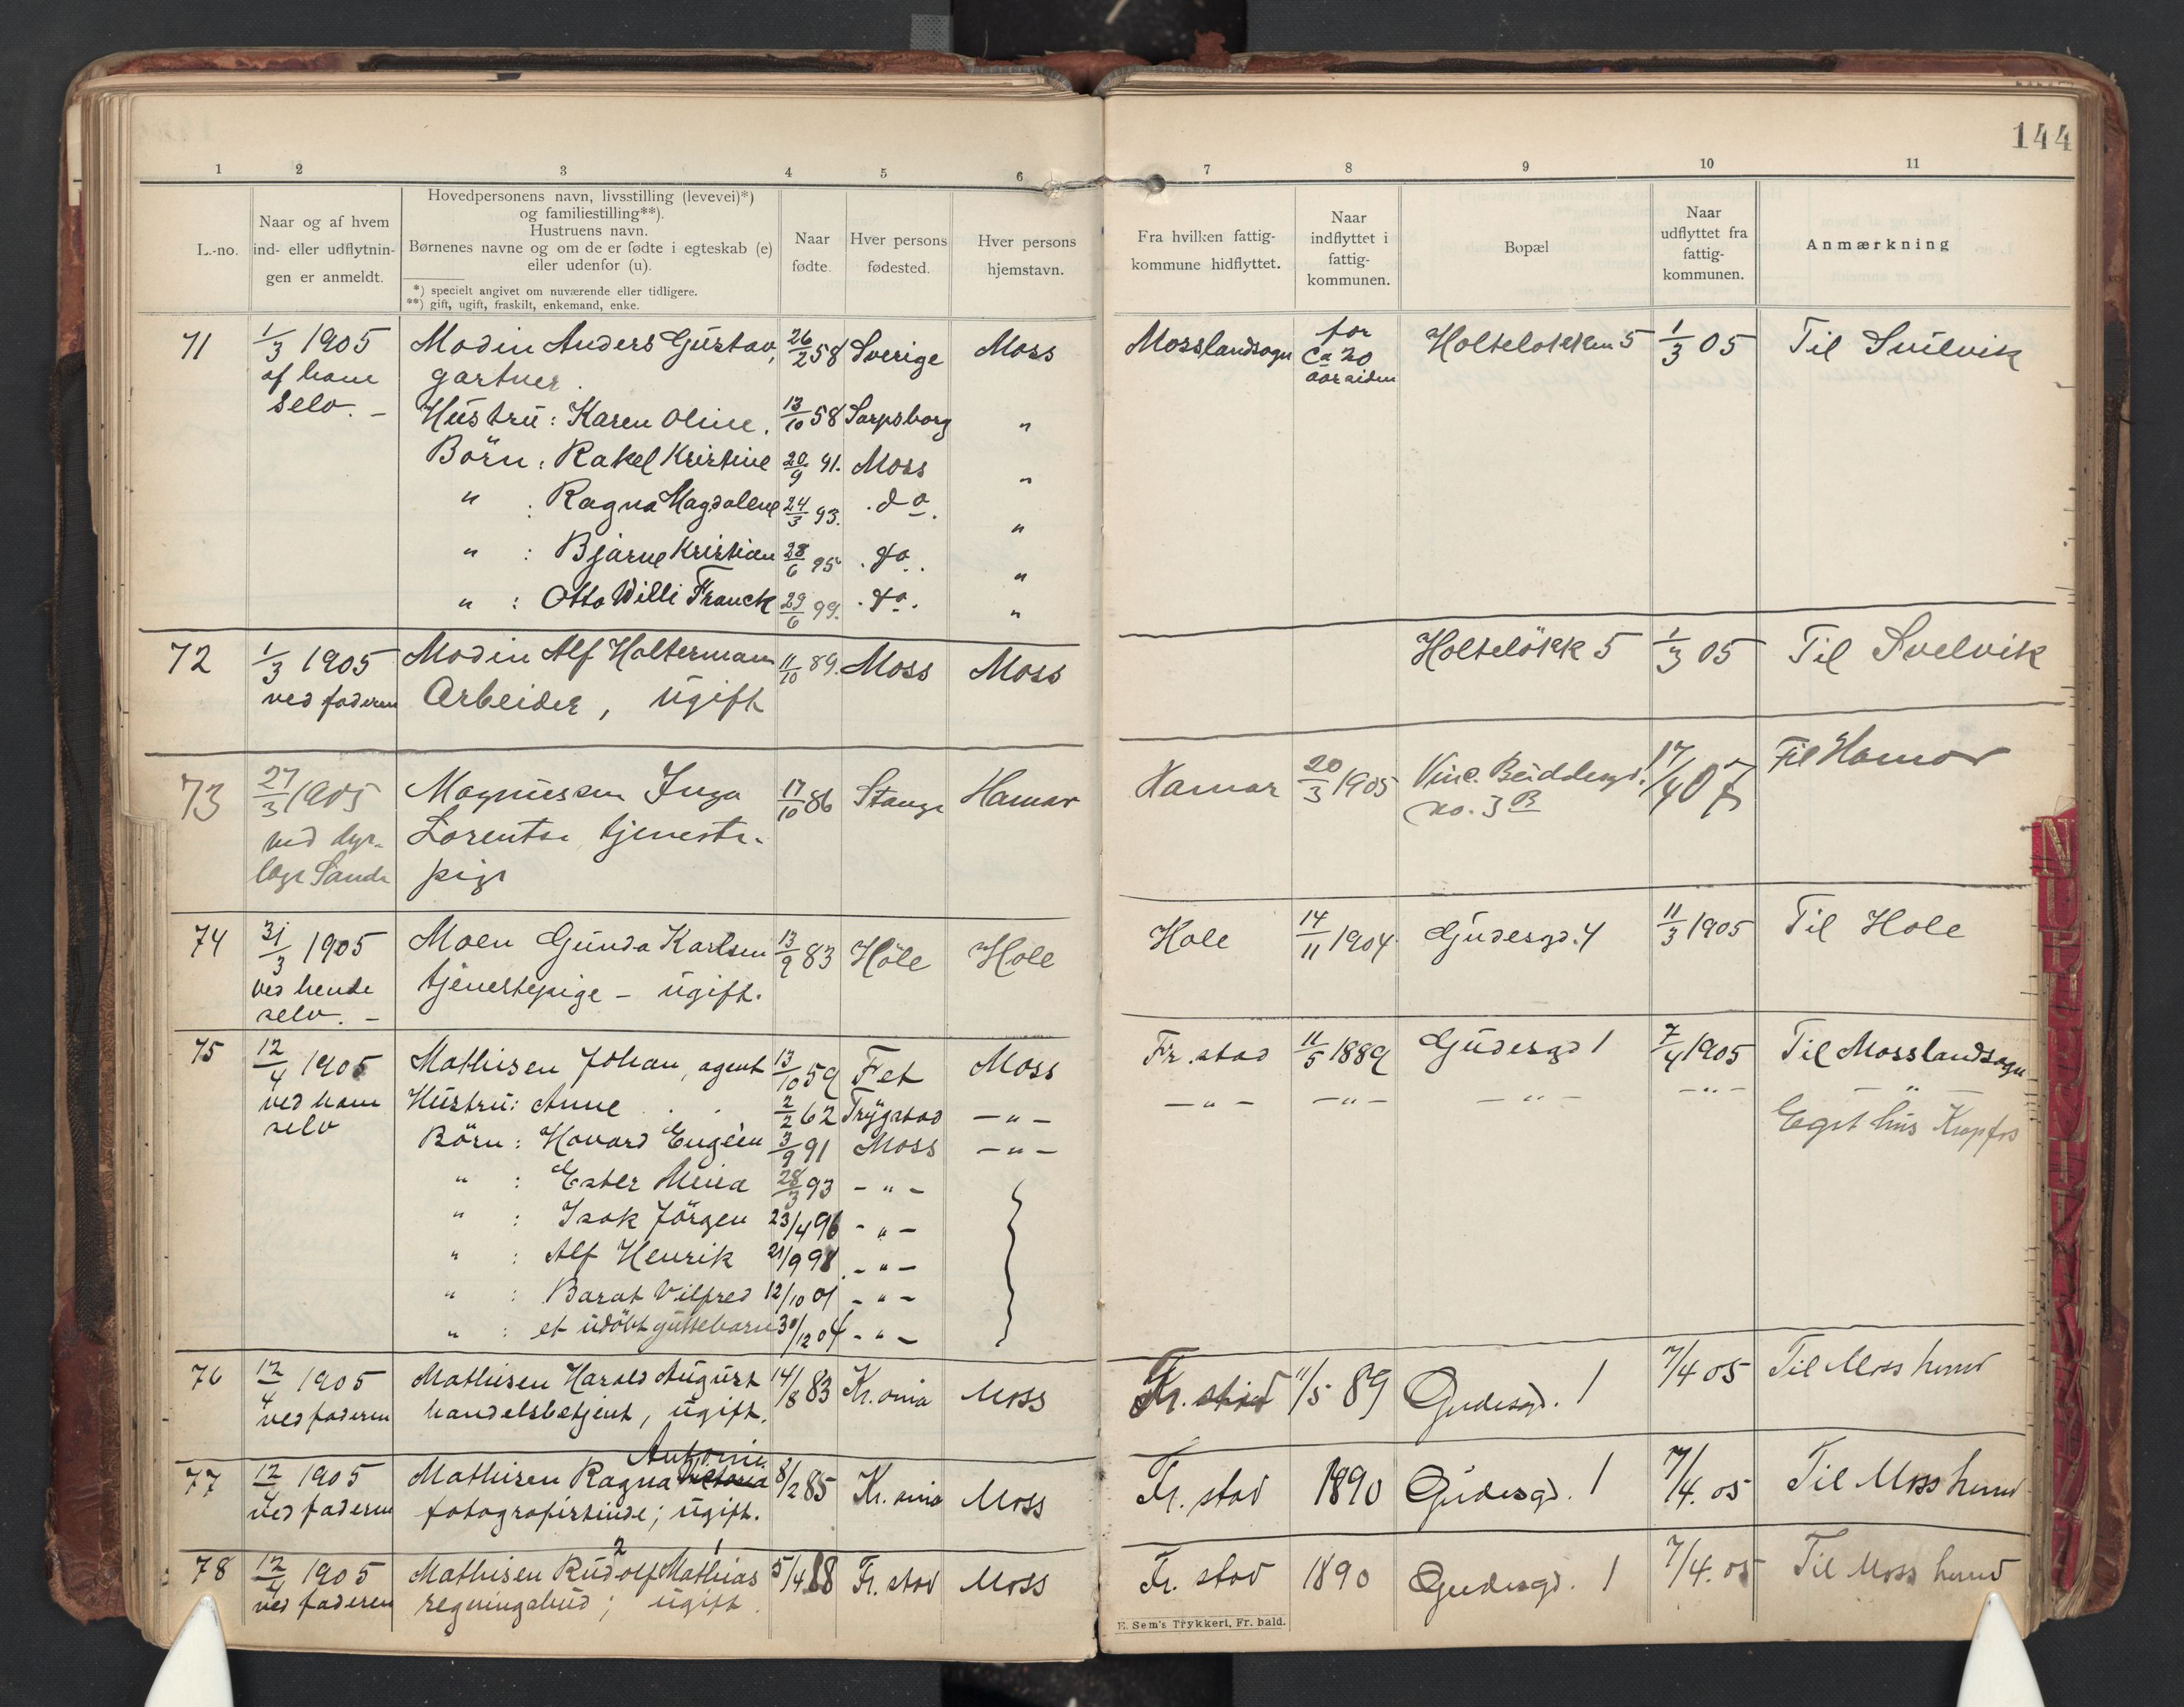 144
1 2 3 4 5 6 7 8 9 10 11
L.-no.
Naar og af hvem
ind- eller udflytnin-
gen er anmeldt.
Hovedpersonens navn, livsstilling (levevei)*)
og familiestilling**).
Hustruens navn.
Børnenes navne og om de er fødte i egteskab (e)
eller udenfor (u).
*) specielt angivet om nuværende eller tidligere.
**) gift, ugift, fraskilt, enkemand, enke.
Naar
fødte.
Hver persons
fødested.
Hver persons
hjemstavn.
Fra hvilken fattig-
kommune hidflyttet.
Naar
indflyttet i
fattig-
kommunen.
Bopæl
Naar
udflyttet fra
fattig-
kommunen.
Anmærkning
71 1/3 1905 Modin Anders Gustav, 26/2 58 Sverige Moss Mosslandsogn for Holteløkken 5 1/3 05 Til Svelvik
af ham gartner. ca 20
selv. - Hustru: Karen Oline. 13/10 58 Sarpsborg " aar siden
Börn: Rakel Kristine 20/9 91. Moss "
" : Ragna Magdalene 24/3 93. do. "
" : Bjarne Kristian 28/6 95 do. "
" : Otto Willi Franck 29/6 99. do. "
72 1/3 1905 Modin Alf Holtermann 11/10 89. Moss Moss Holtelökk 5 1/3 05 Til Svelvik
ved faderen Arbeider, ugift
73 27/3 1905 Magnussen Inga 17/10 86 Stange Hamar Hamar 20/3 1905 Vinc. Buddesgd. 17/4 07 Til Hamar
ved dyr- Lorentse tjeneste- no. 3 B
læge Sande pige
74 31/3 1905 Moen Gunda Karlsen 13/9 83 Hole Hole Hole 14/11 1904 Gudesgd. 4 11/3 1905 Til Hole
ved hende tjenestepige - ugift.
selv. -
75 12/4 1905 Mathisen Johan, agent 13/10 59 Fet Moss Fr. stad 11/5 1889 Gudesgd 1 7/4 1905 Til Mosslandsogn
ved ham Hustru: Anne . . 2/2 62 Trygstad - " - - " - - " - - " - - " - "
selv Börn: Havard Eugèn 3/9 91 Moss - " - Eget hus
" : Ester Mina 28/3 93 - " -
" : Isak Jörgen 23/4 96 - " -
" : Alf Henrik 21/9 98 - " -
" : Barat Vilfred 12/10 01 - " -
" : et udöbt guttebarn 30/12 04 - " -
76 12/4 1905 Mathisen Harald August 14/8 83 Kr. ania Moss Fr. stad 11/5 89 Gudesgd. 1 7/4 05 Til Moss
ved faderen handelsbetjent, ugift.
Antonie
77 12/4 1905 Mathisen Ragna Victoria 8/2 85 Kr. ania Moss Fr. stad 1890 Gudesgd. 1 7/4. 05 Til Moss
ved faderen fotografistinde; ugift.
2 1
78 12/4 1905 Mathisen Rudolf Mathias 5/4 88 Fr. stad Moss Fr. stad 1890 Gudesgd. 1 7/4. 05 Til Moss
ved faderen regningsbud; ugift.
E. Sem's Trykkeri, Fr. hald.